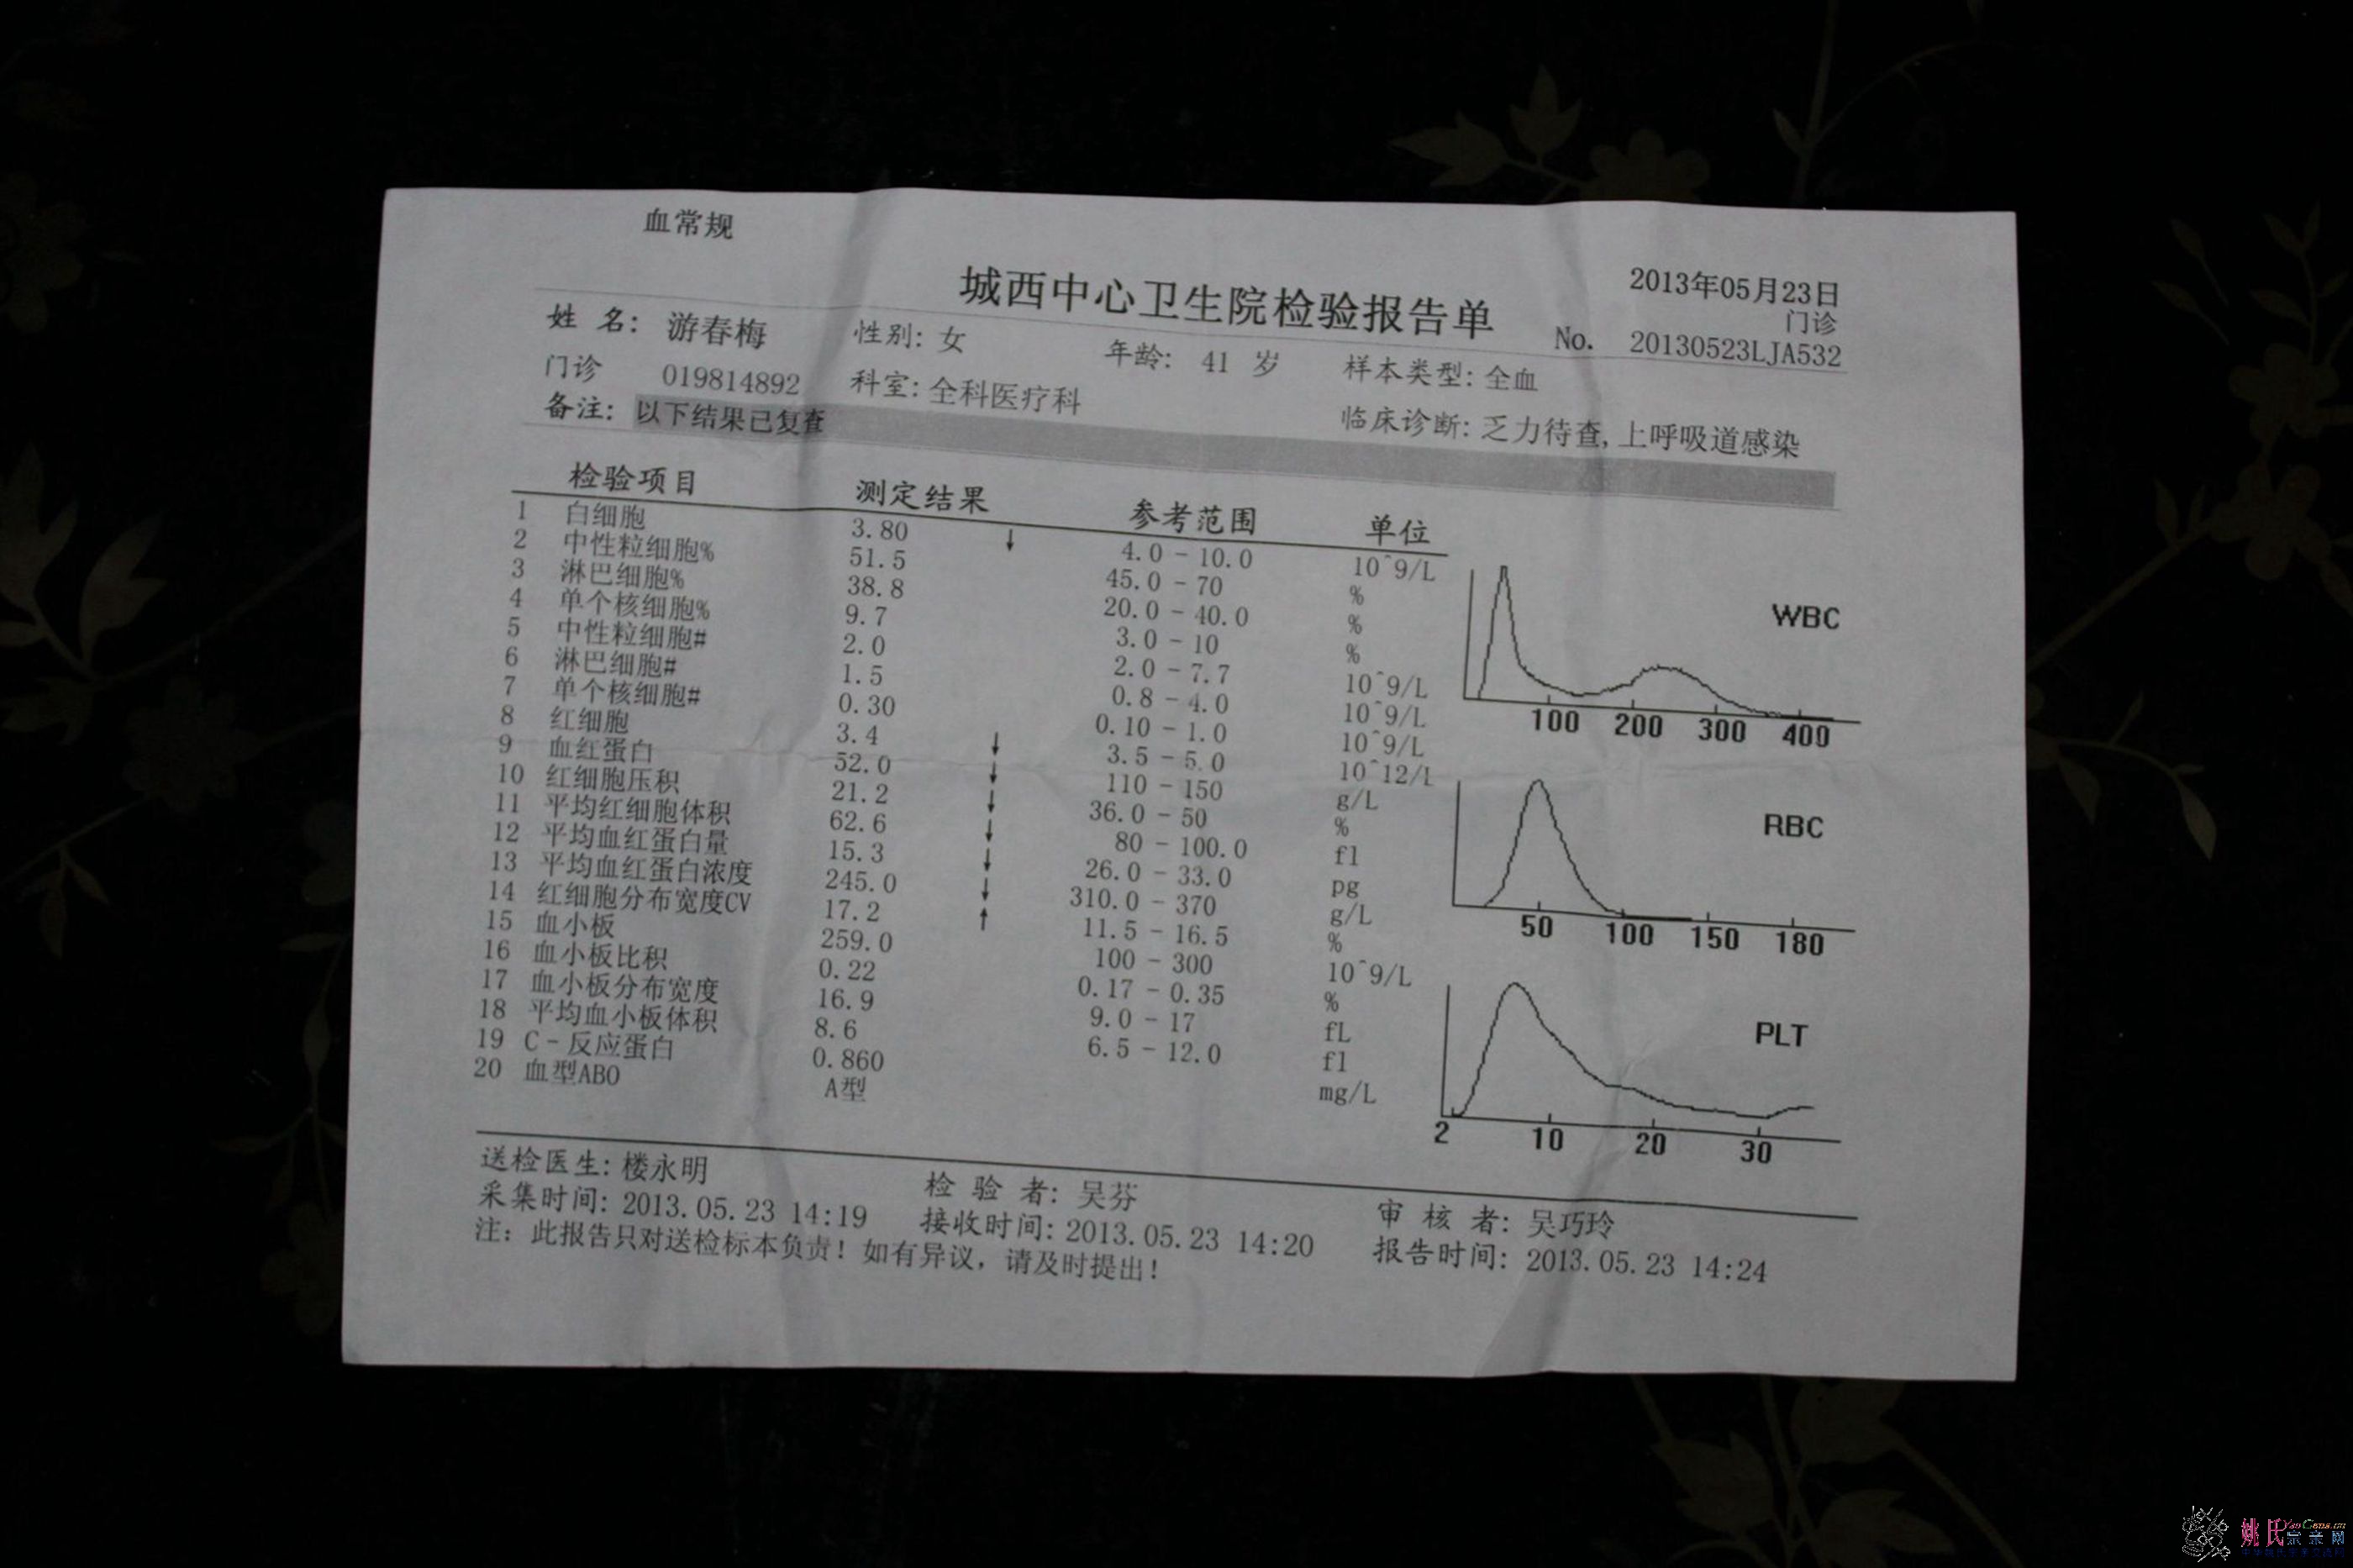 血常规
城西中心卫生院检验报告单
2013年05月23日
门诊
姓 名: 游春梅 性别: 女 年龄: 41 岁 样本类型: 全血 No. 20130523LJA532
门诊 019814892 科室: 全科医疗科 临床诊断: 乏力待查, 上呼吸道感染
备注: 以下结果已复查
检验项目 测定结果 参考范围 单位
1 白细胞 3.80 ↓ 4.0 - 10.0 10^9/L
2 中性粒细胞% 51.5 45.0 - 70 %
3 淋巴细胞% 38.8 20.0 - 40.0 %
4 单个核细胞% 9.7 3.0 - 10 %
5 中性粒细胞# 2.0 2.0 - 7.7 10^9/L
6 淋巴细胞# 1.5 0.8 - 4.0 10^9/L
7 单个核细胞# 0.30 0.10 - 1.0 10^9/L
8 红细胞 3.4 ↓ 3.5 - 5.0 10^12/L
9 血红蛋白 52.0 ↓ 110 - 150 g/L
10 红细胞压积 21.2 ↓ 36.0 - 50 %
11 平均红细胞体积 62.6 ↓ 80 - 100.0 fl
12 平均血红蛋白量 15.3 ↓ 26.0 - 33.0 pg
13 平均血红蛋白浓度 245.0 ↓ 310.0 - 370 g/L
14 红细胞分布宽度CV 17.2 ↑ 11.5 - 16.5 %
15 血小板 259.0 100 - 300 10^9/L
16 血小板比积 0.22 0.17 - 0.35 %
17 血小板分布宽度 16.9 9.0 - 17 fL
18 平均血小板体积 8.6 6.5 - 12.0 fl
19 C-反应蛋白 0.860 mg/L
20 血型ABO A型
WBC
100 200 300 400
RBC
50 100 150 180
PLT
2 10 20 30
送检医生: 楼永明 检 验 者: 吴芬 审 核 者: 吴巧玲
采集时间: 2013.05.23 14:19 接收时间: 2013.05.23 14:20 报告时间: 2013.05.23 14:24
注: 此报告只对送检标本负责! 如有异议, 请及时提出!
姚氏宗亲网
YaoGens.cn